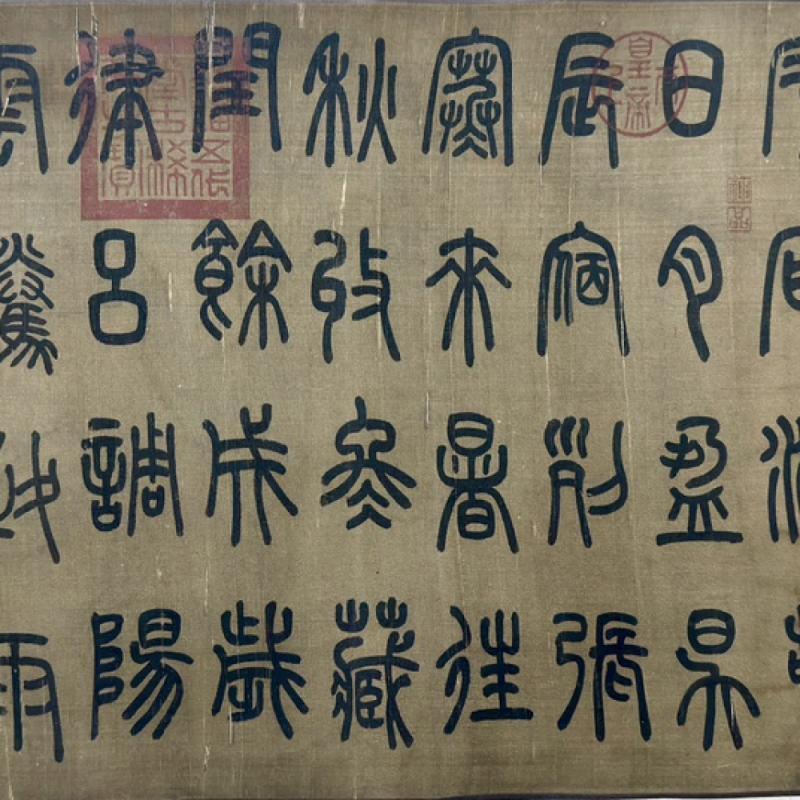 日月盈昃
辰宿列張
寒來暑往
秋收冬藏
閏餘成歲
律呂調陽
雲騰致雨